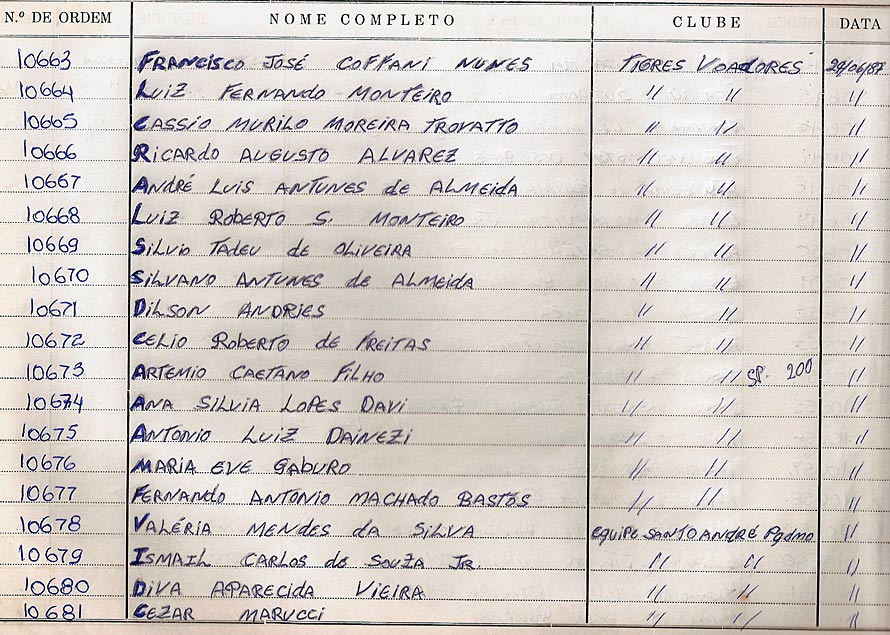 N.º DE ORDEM NOME COMPLETO CLUBE DATA
10663 FRANCISCO JOSÉ COFFANI NUNES TIGRES VOADORES 28/06/87
10664 LUIZ FERNANDO MONTEIRO " " "
10665 CASSIO MURILO MOREIRA TROVATTO " " "
10666 RICARDO AUGUSTO ALVAREZ " " "
10667 ANDRÉ LUIS ANTUNES de ALMEIDA " " "
10668 LUIZ ROBERTO S. MONTEIRO " " "
10669 SILVIO TADEU de OLIVEIRA " " "
10670 SILVANO ANTUNES de ALMEIDA " " "
10671 DILSON ANDRIES " " "
10672 CELIO ROBERTO de FREITAS " " "
10673 ARTEMIO CAETANO FILHO " " SP. 200 "
10674 ANA SILVIA LOPES DAVI " " "
10675 ANTONIO LUIZ DAINEZI " " "
10676 MARIA EVE GABURO " " "
10677 FERNANDO ANTONIO MACHADO BASTOS " " "
10678 VALÉRIA MENDES da SILVA equipe SANTO ANDRÉ Pqdmo "
10679 ISMAIL CARLOS de SOUZA JR. " " "
10680 DIVA APARECIDA VIEIRA " " "
10681 CEZAR MARUCCI " " "